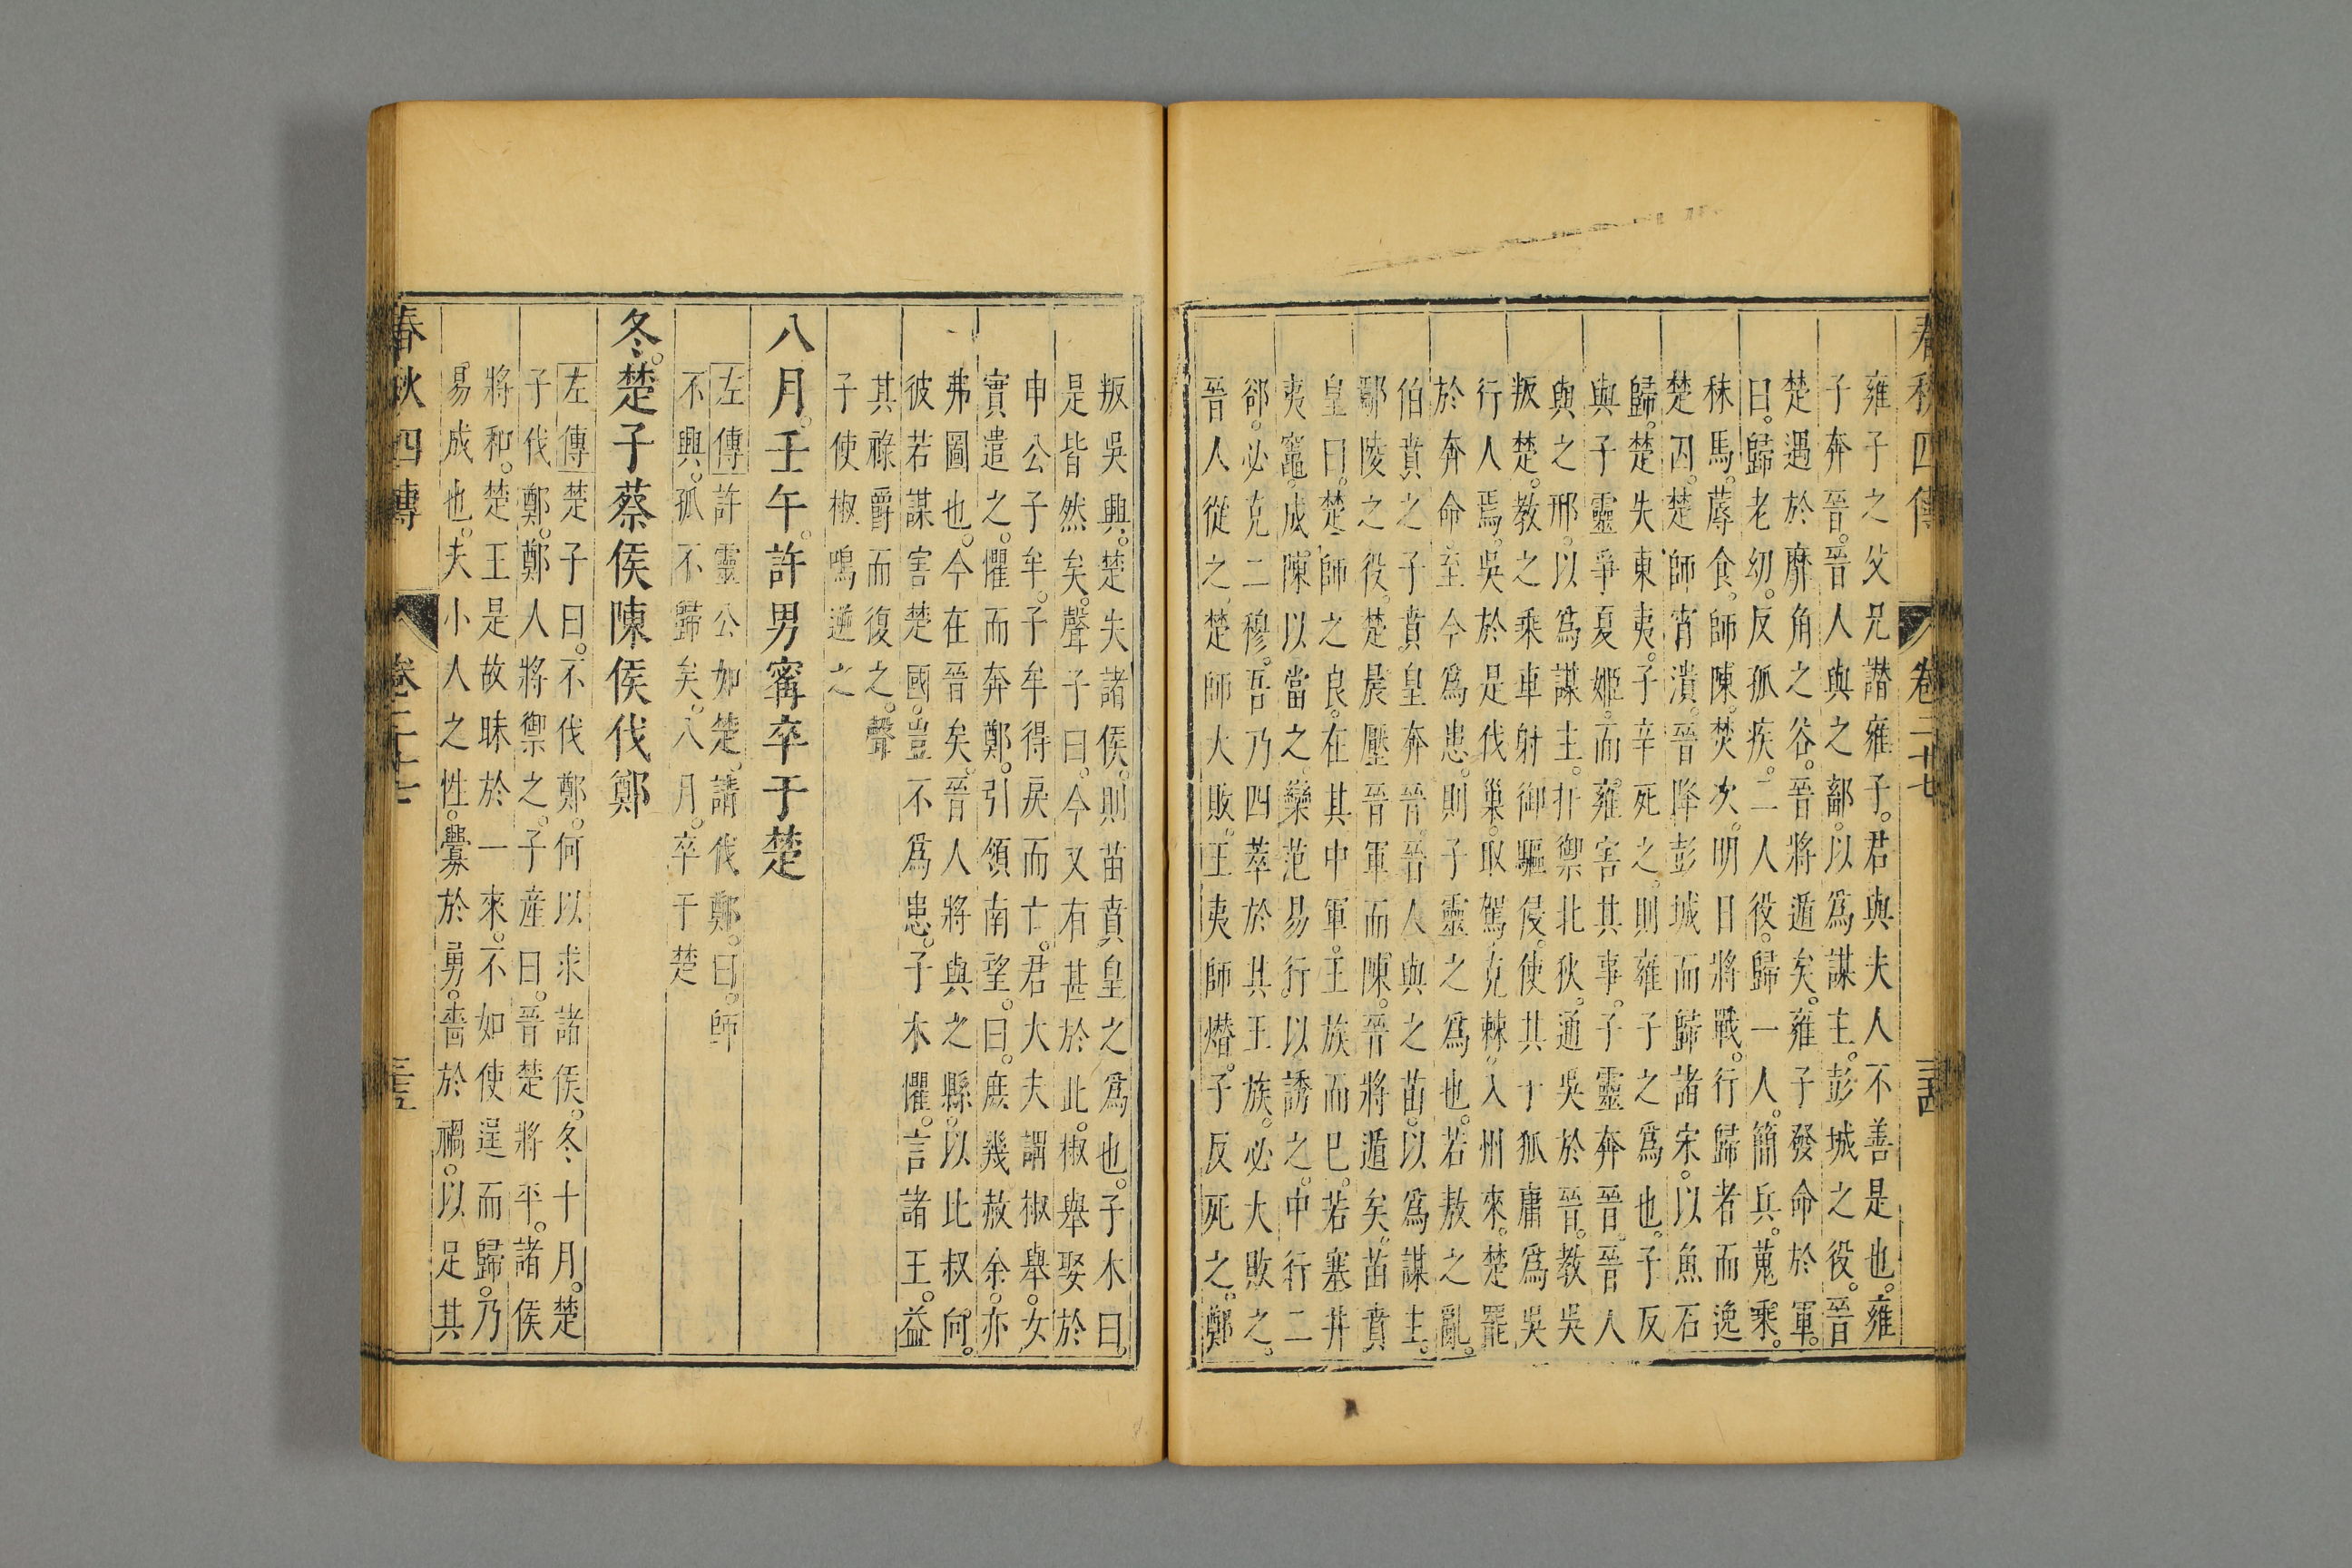 春秋四傳 卷二十七 三四
雍子之父兄譖雍子。君與夫人不善是也。雍
子奔晉。晉人與之鄐。以爲謀主。彭城之役。晉
楚遇於靡角之谷。晉將遁矣。雍子發命於軍。
曰。歸老幼。反孤疾。二人役。歸一人。簡兵蒐乘。
秣馬。蓐食。師陳。焚次。明日將戰。行歸者而逸
楚囚。楚師宵潰。晉降彭城而歸諸宋。以魚石
歸。楚失東夷。子辛死之。則雍子之爲也。子反
與子靈爭夏姬。而雍害其事。子靈奔晉。晉人
與之邢。以爲謀主。扞禦北狄。通吳於晉。教吳
叛楚。教之乘車射御驅侵。使其子狐庸爲吳
行人焉。吳於是伐巢。取駕。克棘。入州來。楚罷
於奔命。至今爲患。則子靈之爲也。若敖之亂。
伯賁之子賁皇奔晉。晉人與之苗。以爲謀主。
鄢陵之役。楚晨壓晉軍而陳。晉將遁矣。苗賁
皇曰。楚師之良。在其中軍。王族而已。若塞井
夷竈。成陳以當之。欒范易行。以誘之。中行二
郤。必克二穆。吾乃四萃於其王族。必大敗之。
晉人從之。楚師大敗。王夷師熸。子反死之。鄭
叛吳興。楚失諸侯。則苗賁皇之爲也。子木曰。
是皆然矣。聲子曰。今又有甚於此。椒舉娶於
申公子牟。子牟得戾而亡。君大夫謂椒舉。女
實遣之。懼而奔鄭。引領南望。曰。庶幾赦余。亦
弗圖也。今在晉矣。晉人將與之縣。以比叔向。
彼若謀害楚國。豈不爲患。子木懼。言諸王。益
其祿爵而復之。聲
子使椒鳴逆之
八月。壬午。許男甯卒于楚
左傳許靈公如楚。請伐鄭。曰。師
不興。孤不歸矣。八月。卒于楚
冬。楚子蔡侯陳侯伐鄭
左傳楚子曰。不伐鄭。何以求諸侯。冬。十月。楚
子伐鄭。鄭人將禦之。子產曰。晉楚將平。諸侯
將和。楚王是故昧於一來。不如使逞而歸。乃
易成也。夫小人之性。釁於勇。嗇於禍。以足其
春秋四傳 卷二十七 三五